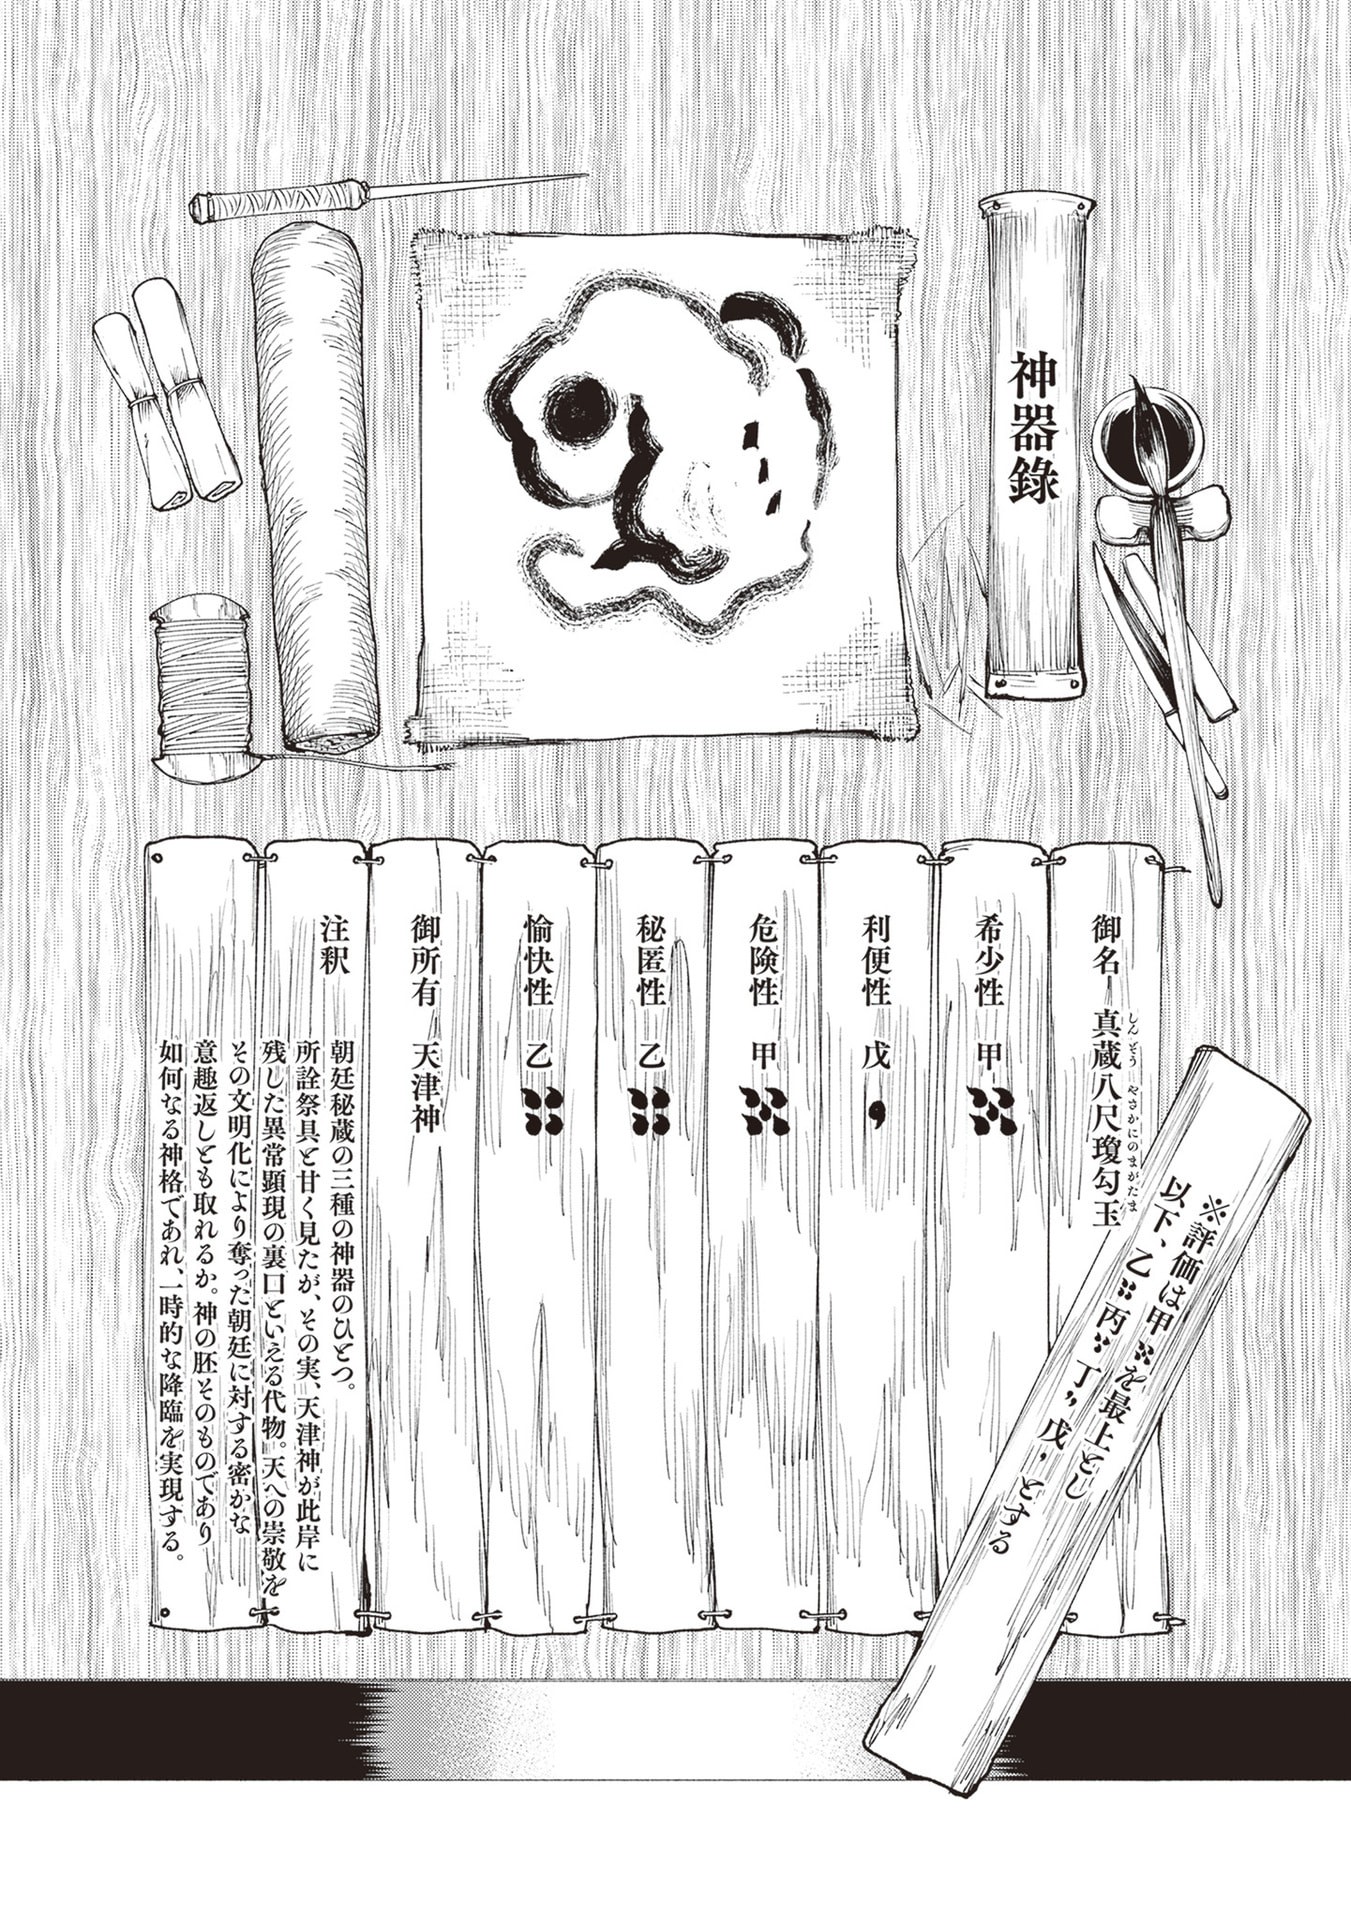 神器錄
御名 真蔵八尺瓊勾玉
しんぞう やさかにのまがたま
希少性 甲
利便性 戊
危険性 甲
秘匿性 乙
愉快性 乙
御所有 天津神
注釈
朝廷秘蔵の三種の神器のひとつ。
所詮祭具と甘く見たが、その実、天津神が此岸に
残した異常顕現の裏口といえる代物。天への崇敬を
その文明化により奪った朝廷に対する密かな
意趣返しとも取れるか。神の胚そのものであり
如何なる神格であれ、一時的な降臨を実現する。
※評価は甲を最上とし
以下、乙 丙 丁 戊 とする